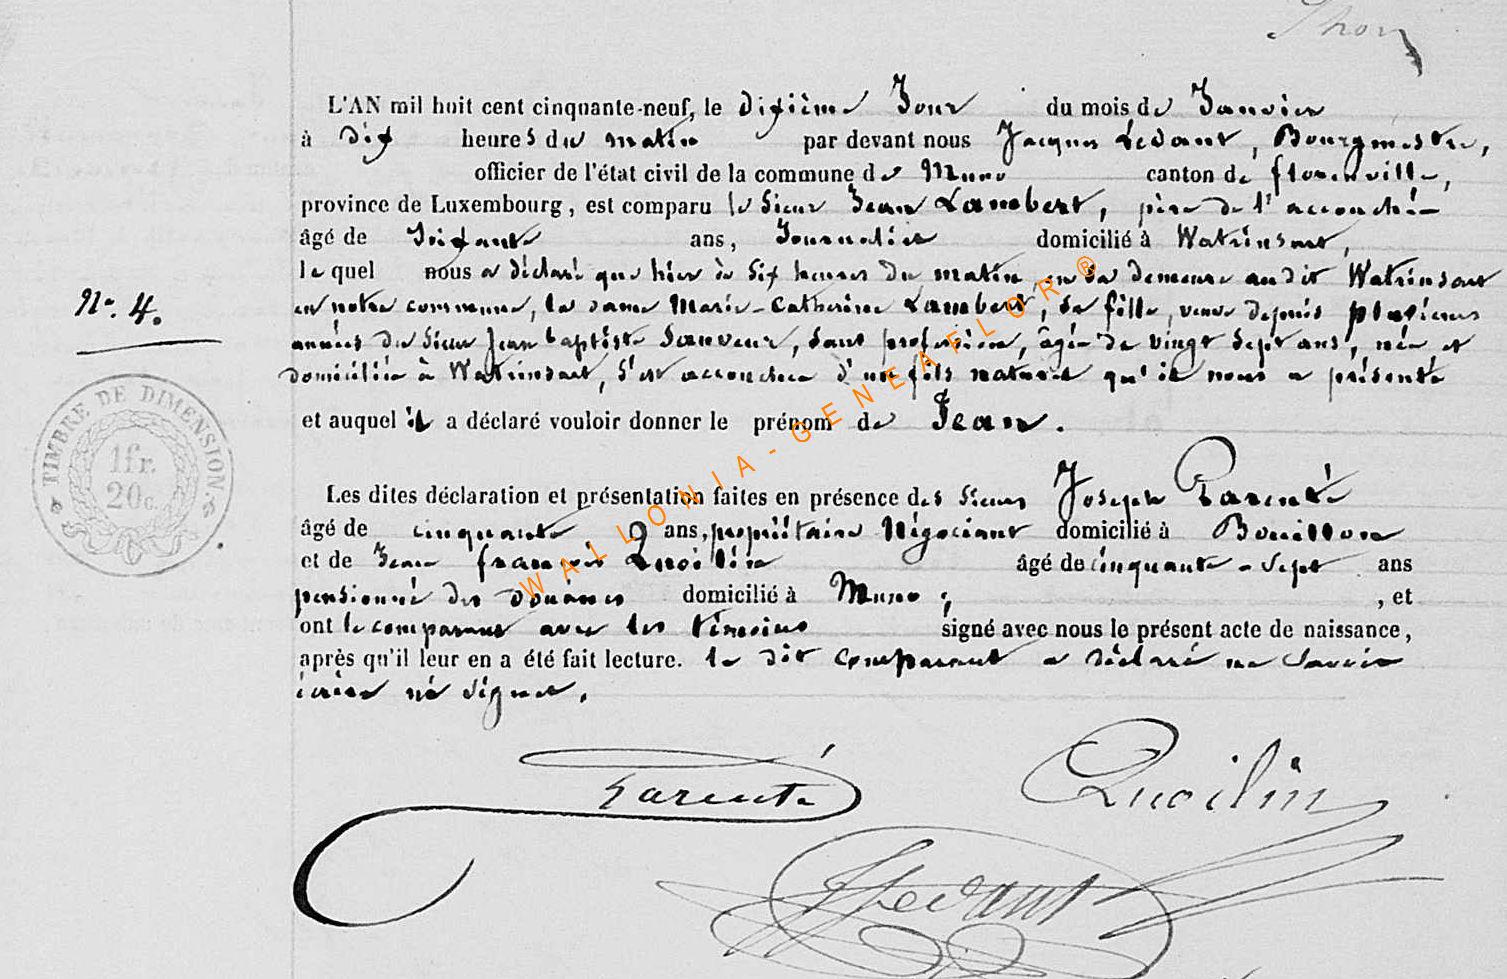 Thon
L'AN mil huit cent cinquante-neuf, le dixième Jour du mois de Janvier
à dix heures du matin par devant nous Jacques Ledant, Bourgmestre,
officier de l'état civil de la commune de Muno canton de florenville,
province de Luxembourg, est comparu le Sieur Jean Lambert, père de l'accouchée
âgé de Soixante ans, Journalier domicilié à Watrinsart,
lequel nous a déclaré que hier à Six heures du matin en sa demeure audit Watrinsart
N° 4. en notre commune, la dame Marie-Catherine Lambert, sa fille, veuve depuis plusieurs
années du Sieur Jean baptiste Sauveur, sans profession, âgée de vingt Sept ans, née et
domiciliée à Watrinsart, S'est accouchée d'un fils naturel qu'il nous a présenté
et auquel il a déclaré vouloir donner le prénom de Jean.
TIMBRE DE DIMENSION.
1fr.
20c.
Les dites déclaration et présentation faites en présence des Sieurs Joseph Parenté
âgé de cinquante ans, propriétaire Négociant domicilié à Bouillon
et de Jean françois Quoilin âgé de cinquante-sept ans
pensionné des douanes domicilié à Muno ; , et
ont le comparant avec les témoins signé avec nous le présent acte de naissance,
après qu'il leur en a été fait lecture. le dit comparant a déclaré ne Savoir
écrire ni signer.
Parenté
Quoilin
JLedant
WALLONIA-GENEAFLOR®